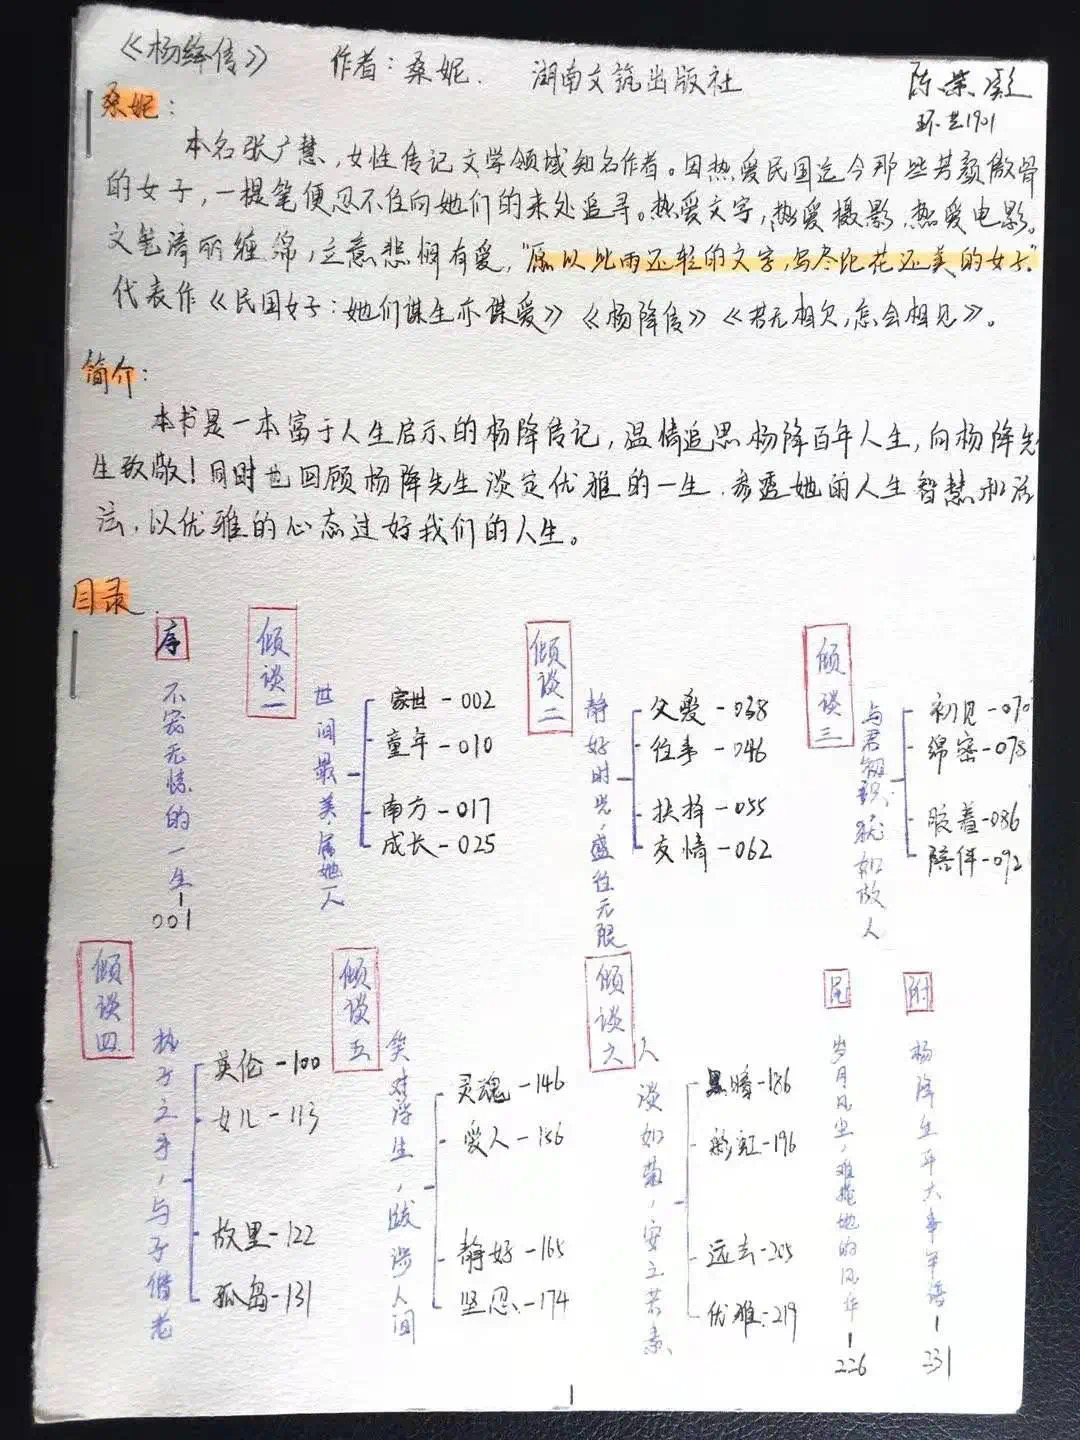 《杨绛传》 作者：桑妮. 湖南文艺出版社
陈荣
环艺1901
桑妮：
本名张广慧,女性传记文学领域知名作者。因热爱民国迄今那些芳颜傲骨
的女子,一提笔便忍不住向她们的来处追寻。热爱文字,热爱摄影、热爱电影。
文笔清丽缠绵,立意悲悯有爱,"愿以比雨还轻的文字,写尽比花还美的女子."
代表作《民国女子：她们谋生亦谋爱》《杨降传》《若无相欠,怎会相见》。
简介：
本书是一本富于人生启示的杨降传记,温情追思杨降百年人生,向杨降先
生致敬!同时也回顾杨降先生淡定优雅的一生.参透她的人生智慧和活
法,以优雅的心态过好我们的人生。
目录
序
不寂无惊的一生-001
倾谈一
世间最美,属她一人
家世-002
童年-010
南方-017
成长-025
倾谈二
静好时光,盛往无限
父爱-038
往事-046
抉择-055
友情-062
倾谈三
与君相识,就如故人
初见-070
绵密-078
胶着-086
陪伴-092
倾谈四
执子之手,与子偕老
英伦-100
女儿-113
故里-122
孤岛-131
倾谈五
笑对浮生,跋涉人间
灵魂-146
爱人-156
静好-165
坚忍-174
倾谈六
人淡如菊,安之若素
黑暗-186
彩虹-196
远去-205
优雅-219
尾
岁月风尘,难掩她的风华-226
附
杨降生平大事年谱-231